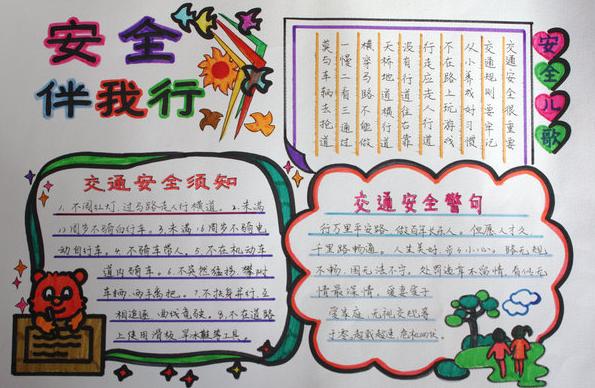 安全
伴我行
安全儿歌
交通安全很重要
交通规则要牢记
从小养成好习惯
不在路上玩游戏
行走应走人行道
没有行道往右靠
天桥地道横行道
横穿马路不能做
一慢二看三通过
莫与车辆去抢道
交通安全须知
1.不闯红灯.过马路走人行横道. 2.未满
12周岁不骑自行车. 3.未满16周岁不骑电
动自行车. 4.不骑车带人. 5.不在机动车
道内骑车. 6.不突然猛拐、攀附
车辆.两手离把. 7.不扶身并行.互
相追逐.曲线竞驶. 8.不在道路
上使用滑板.旱冰鞋等工具.
交通安全警句
行万里平安路.做百年长乐人. 但愿人长久
千里路畅通. 人生美好.步步小心. 路无规
不畅.国无法不宁. 处罚违章不留情.看似无
情最深情. 爱妻爱子
爱家庭.无视交规等
于零.超载超速.危机四伏.